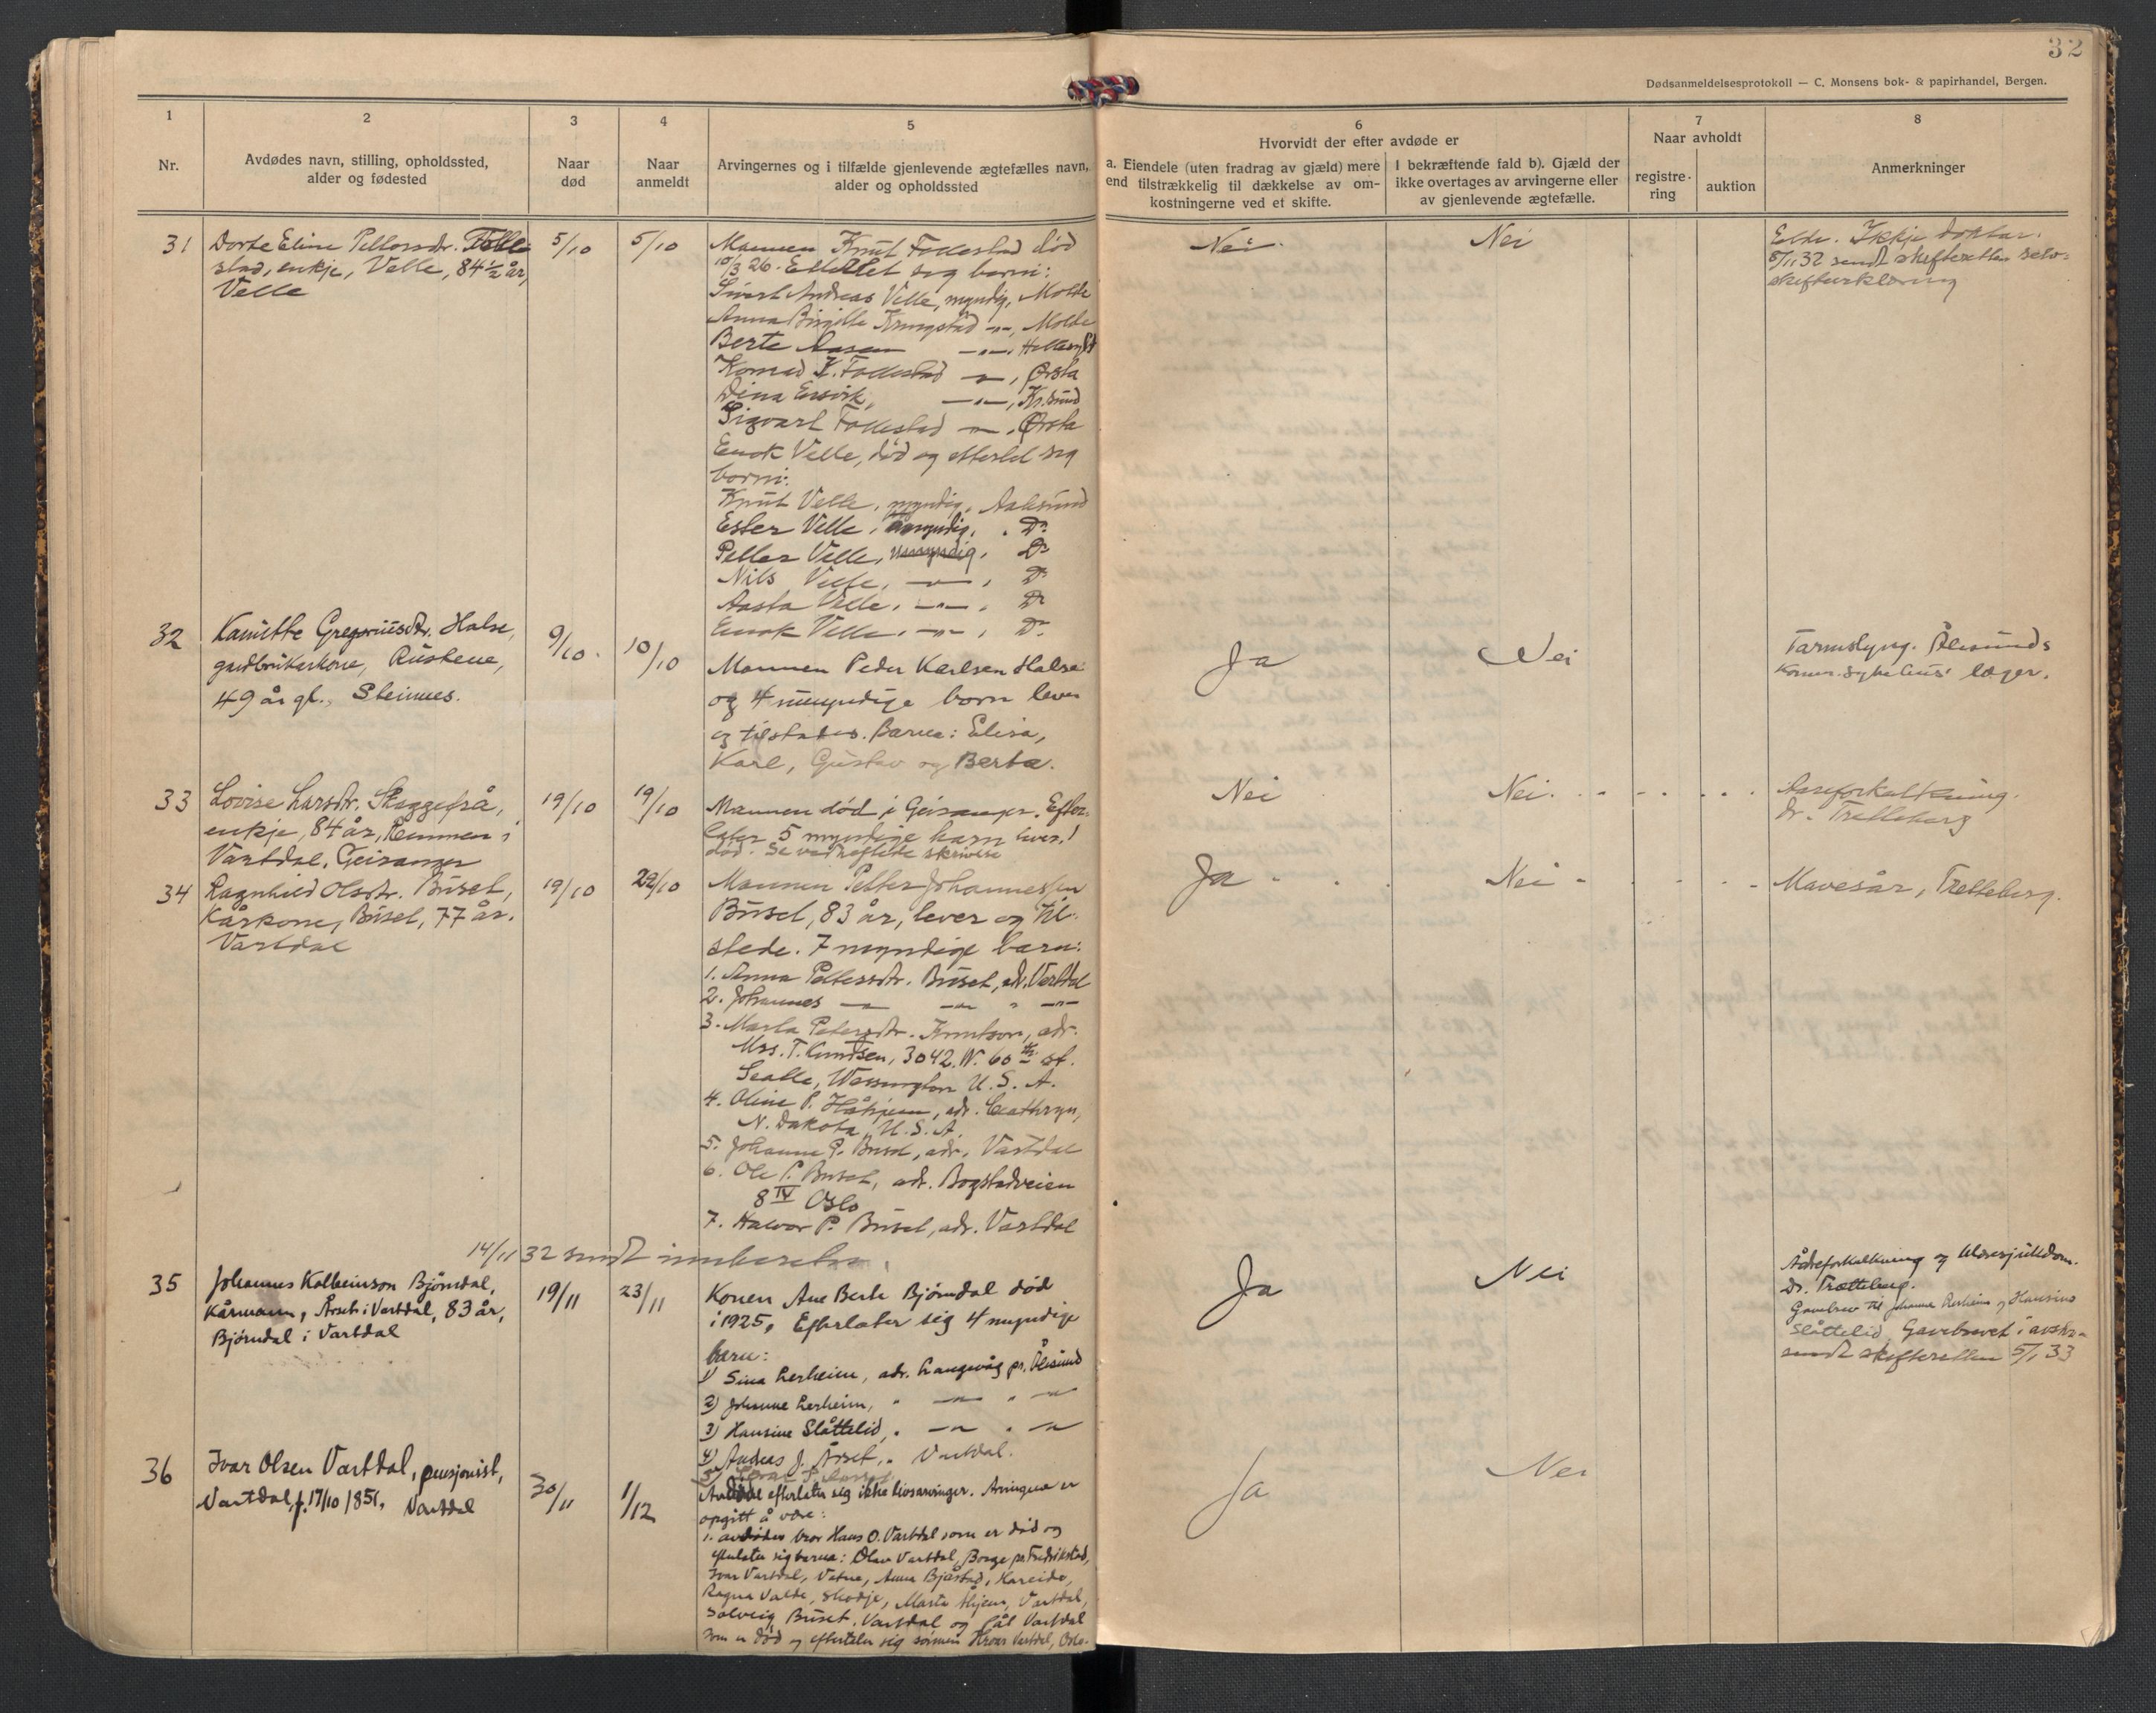 32
Dødsanmeldelsesprotokoll — C. Monsens bok- & papirhandel, Bergen.
1 2 3 4 5 6 7 8
Nr.
Avdødes navn, stilling, opholdssted,
alder og fødested
Naar
død
Naar
anmeldt
Arvingernes og i tilfælde gjenlevende ægtefælles navn,
alder og opholdssted
Hvorvidt der efter avdøde er
a. Eiendele (uten fradrag av gjæld) mere
end tilstrækkelig til dækkelse av om-
kostningerne ved et skifte.
I bekræftende fald b). Gjæld der
ikke overtages av arvingerne eller
av gjenlevende ægtefælle.
Naar avholdt
registre-
ring
auktion
Anmerkninger
31
Dorte Eline Pettersdr. Folle-
stad, enkje, Velle, 84 ½ år,
Velle
5/10
5/10
Mannen Knut Follestad død
10/3 26. Etterlet seg borni:
Sivert Andreas Velle, myndig, Molde
Anna Birgitte Krungstad -"-, Molde
Berte Aasen -"-,
Konrad K. Follestad -"-, Ørsta
Dina -"-, Kr.sund
Sigvart Follestad -"-, Ørsta
Enok Velle, død og etterlet seg
borni:
Knut Velle, myndig, Aalesund
Ester Velle, . Do
Petter Velle, umyndig, Do
Nils Velle, -"-, Do
Aasta Velle, -"-, Do
Enok Velle, -"-, Do
Nei.
Nei
Elde. Ikkje doktar.
8/11 32 sendt skifteretten selv-
skifteerklæring
32
Kamitte Gregoriusdtr. Halse,
gardbrukarkone, Rustene,
49 år gl., Steinnes.
9/10.
10/10
Mannen Peder Karlsen Halse
og 4 umyndige born lever
og tilstades. Barna: Elisa,
Karl, Gustav og Berta.
Ja
Nei
Tarmslyng. Ålesunds
komm. sykehus' læger.
33
Lovise Larsdtr. Skaggefrå,
enkje, 84 år, Remmen i
Vartdal, Geiranger
19/10
19/10
Mannen død i Geiranger. Efter-
later 5 myndige barn
død. Se vedheftede skrivelse
Nei
Nei.
Aareforkalkning.
dr. Tretteberg
34
Ragnhild Olsdtr. Buset,
Kårkone, Buset, 77 år.
Vartdal
19/10
29/10
Mannen Petter Johannessen
Buset, 83 år, lever og til-
stede. 7 myndige barn:
1. Anna Pettersdtr. Buset, adr. Vartdal
2. Johannes -"- -"- " -"-
3. Marta Petersdtr. Knutson, adr.
Mrs. T. Knudsen, 3042. W. 60 th st.
Seatle, Wassington U.S.A.
4. Oline P. Håhjem, adr. Cathryn,
N. Dakota, U.S.A.
5. Johanne P. Buset, adr. Vartdal
6. Ole P. Buset, adr. Bogstadveien
8 IV Oslo
7. Halvor P. Buset, adr. Vartdal
Ja
Nei
Mavesår, Tretteberg.
14/11 32 sendt innberetn.
35
Johannes Kolbeinson Bjørndal,
Kårmann, Årset i Vartdal, 83 år,
Bjørndal i Vartdal
19/11
23/11
Konen Ane Berte Bjørndal død
i 1925. Efterlater sig 4 myndige
barn:
1) Sina Lerheim, adr. Langevåg pr. Ålesund
2) Johanne Lerheim, " -"- " -"-
3) Hansine Slåttelid, " -"- " -"-
4) Andreas J. Årset, " Vartdal.
Ja
Nei
Ådreforkalkning og blæresjukdom.
Dr. Tretteberg.
Gavebrev til Johanne Lerheim og Hansine
Slåttelid. Gavebrevet i avskr.
sendt skifteretten 5/1 33
36
Ivar Olsen Vartdal, pensjonist,
Vartdal, f. 17/10 1851, Vartdal
30/11
1/12
Avdøde efterlater sig ikke livsarvinger. Arvingene er
opgitt å være:
1. avdødes bror Hans O. Vartdal som er død og
efterlater sig barna: Olav Vartdal, Borge pr. Fredrikstad,
Ivar Vartdal, Vatne, Anna Bjåstad, Hareide,
Ragna Valde, Skodje, Marta Håhjem, Vartdal,
Solveig Buset, Vartdal og Pål Vartdal
som er død og efterlater sig sønnen Vartdal, Oslo.
Ja
Nei